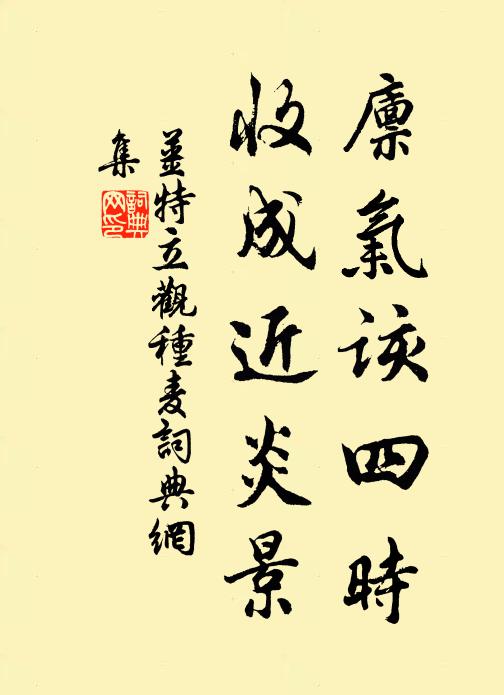 禀氣該四時
收成近炎景
姜特立觀種麦詞典網
集
詞典
网印